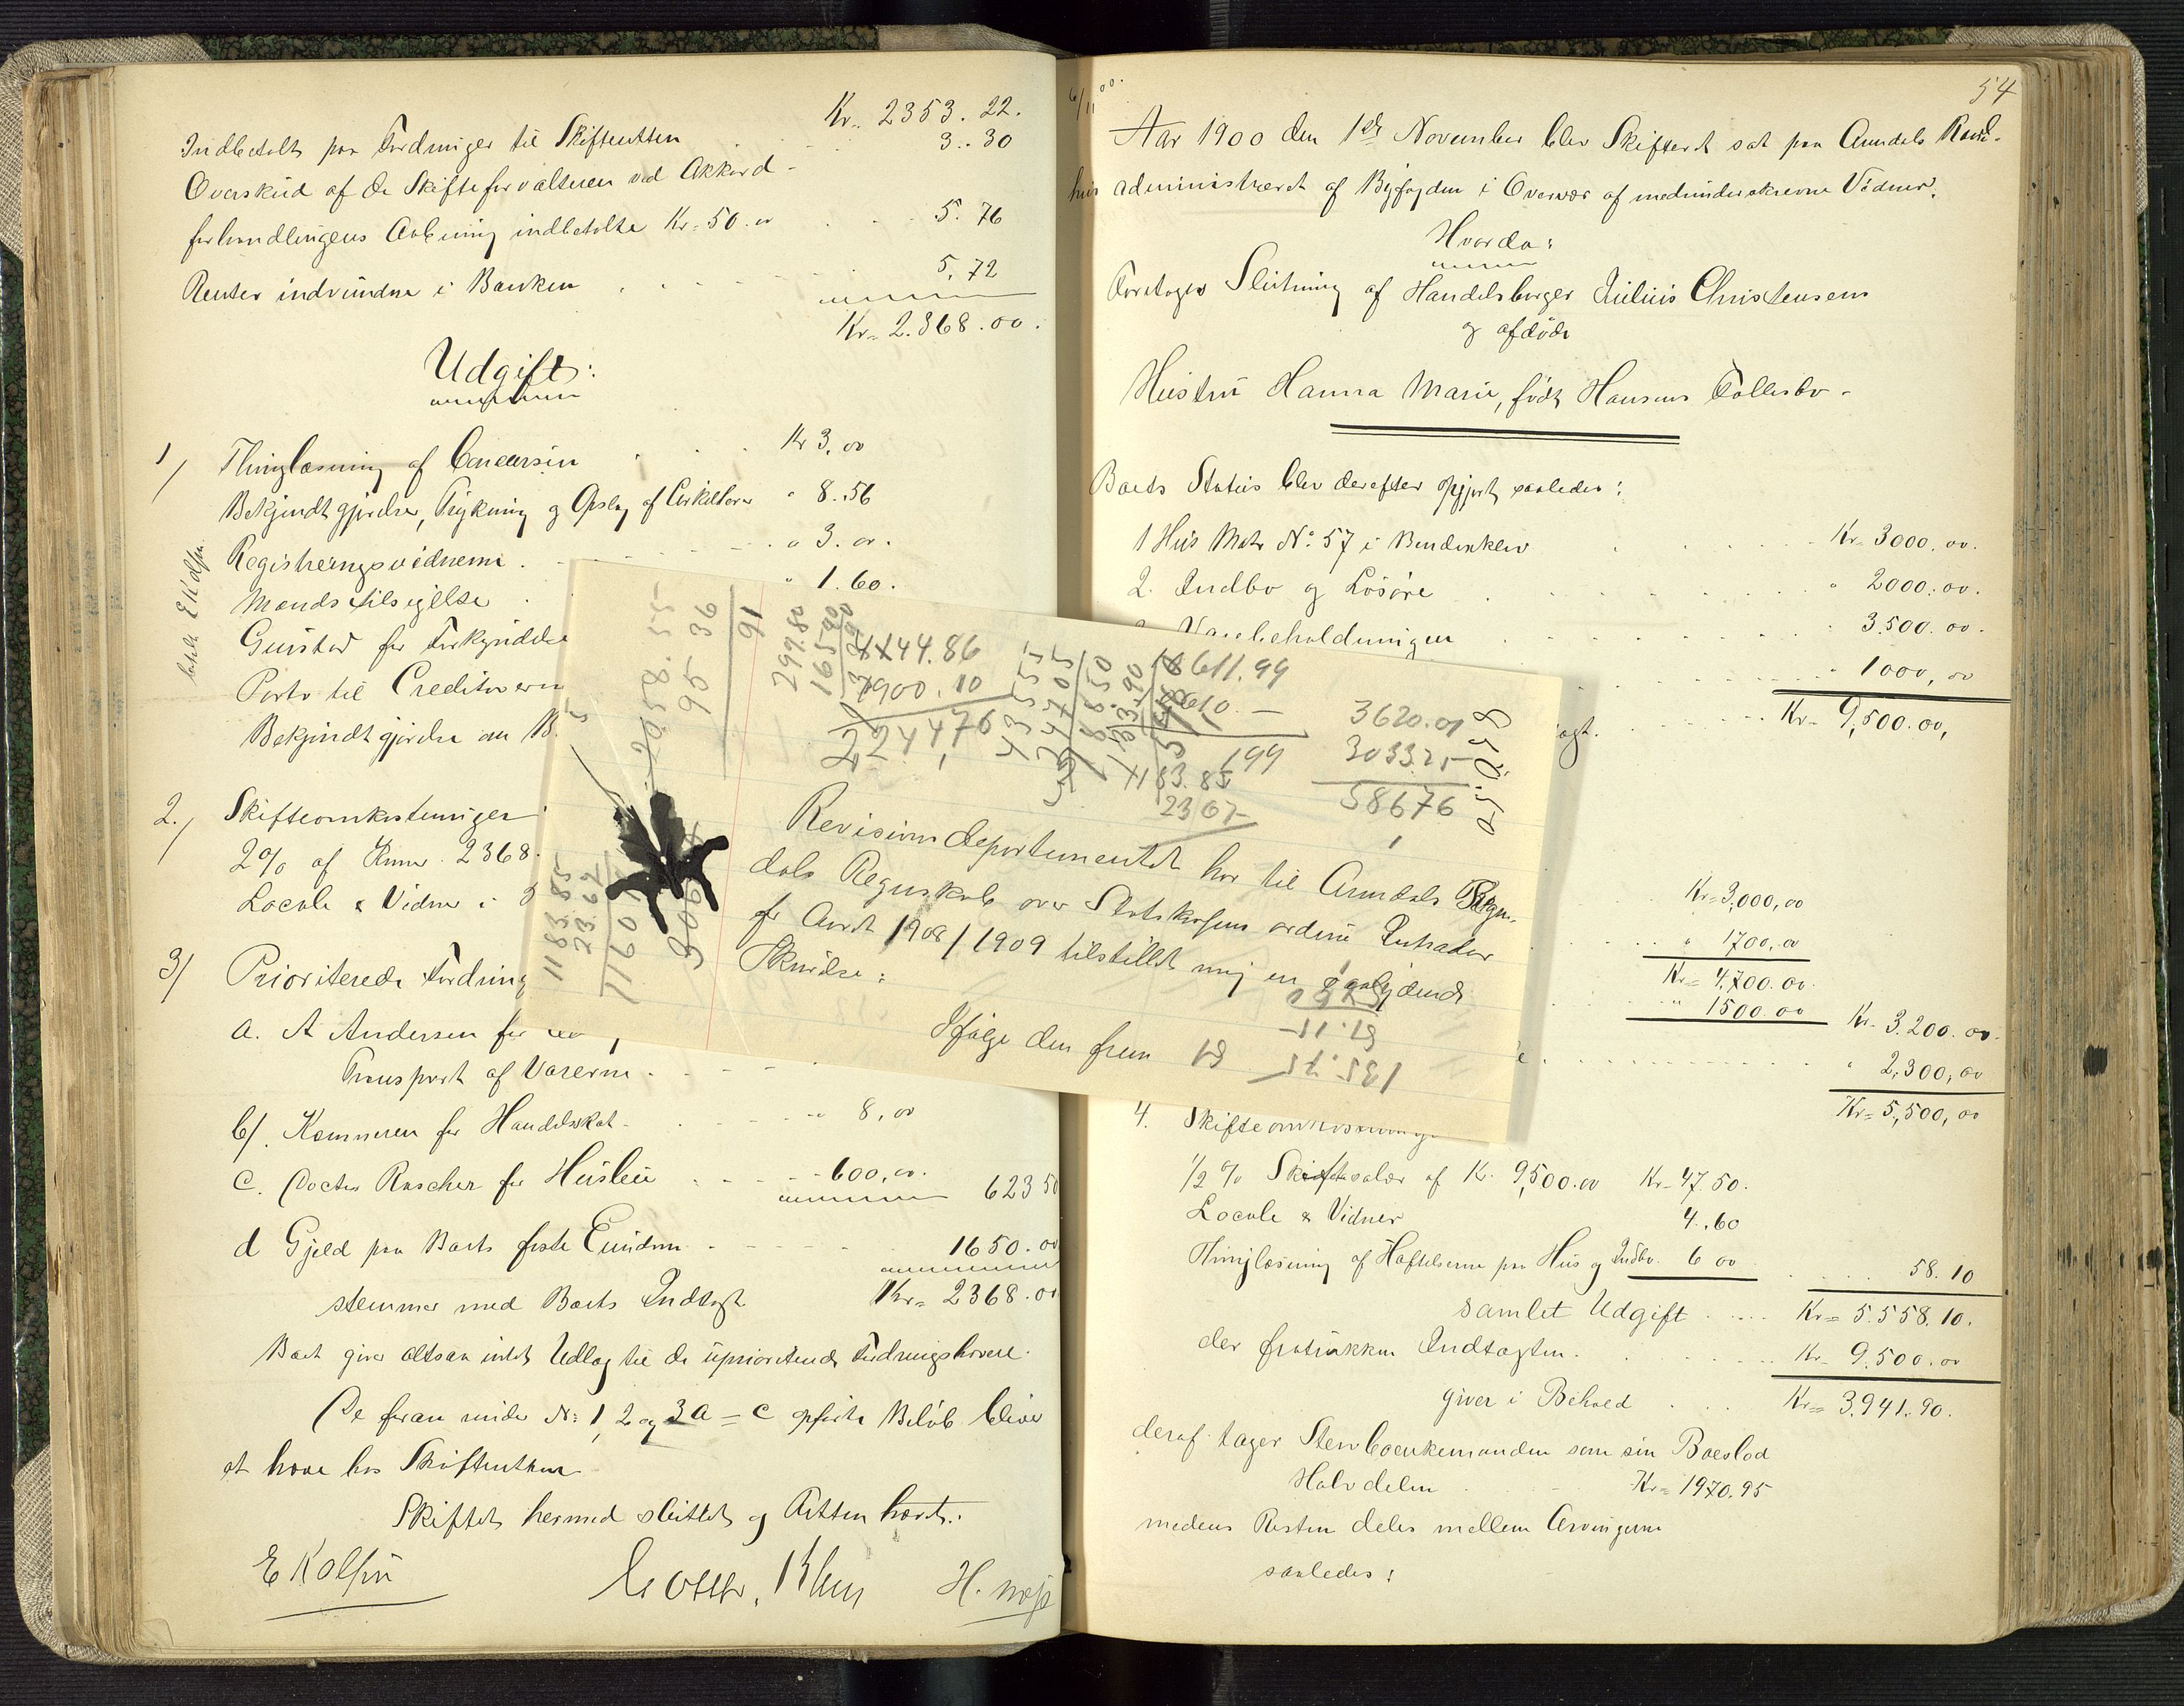 Kr. 2353. 22.
Indbetalt paa Fordringer til Skifteretten 3.. 30
Overskud af de Skifteforvalteren ved Akkord-
forhandlingens Aabning indbetalte Kr. 50.00 5. 76
Renter indvundne i Banken 5. 72
Kr. 2.368.00.
Udgift:
1/ Thinglæsning af Concursen Kr 3,00
Bekjendtgjørelse, Trykning og Opslag af Cirkulærer " 8.56
Registreringsvidnerne " 3.00.
Mandstilsigelse " 1.60.
betalt EKolfin
Gunstad for Forkyndelse
Porto til Creditorerne
Bekjendtgjørelse om B.
2./ Skifteomkostninger
2% af Kroner 2368.
Locale & Vidner i 3
3/ Prioriterede Fordring
a. A Andersen for
Transport af Varerne
b/. Kæmneren for Handelsskat " 8,00
c. Doctor Rascher for Husleie 600,00. 623 50
d Gjeld paa Boets faste Eiendom 1650.00
stemmer med Boets Indtægt Kr. 2368.00
Boet giver altsaa intet Udlæg til de uprioriterede Fordringshavere.
De foran under No: 1, 2 og 3a = c opførte Beløb bliver
at hæve hos Skifteretten
Skiftet hermed sluttet og Retten hævet.
E Kolfin
H.
2058.55
95 36
91
299.80
1144.86
900.10
224476
43555
34705
8850
8611.99
8610.—
199
1183.85
2367
3620.01
3033.25
58676
1183.85
23.67
11607
Revisionsdepartementet har til Arendals Bygn.
dals Regnskab over Statskassens ordinære Intrader
for Aaret 1908/1909 tilstillet mig en saalydende
Skrivelse:
Ifølge den frem
19
51.11
135.75
6/11 00.
54
Aar 1900 den 1ste November blev Skifteret sat paa Arendals Raad-
hus administreret af Byfogden i Overvær af medunderskrevne Vidner.
Hvorda:
Foretoges Slutning af Handelsborger Julius Christensens
og afdøde
Hustru Hanna Marie, født Hansens Fællesbo-
Boets Status blev derefter opgjort saaledes:
1 Hus Matr No. 57 i Bendiksklev Kr. 3000.00.
2. Indbo og Løsøre " 2000.00.
Varebeholdningen 3.500.00.
" 1000,00
ægt. Kr. 9,500.00,
Kr. 3,000,00
" 1700,00
Kr. 4,700.00.
" 1500.00 Kr. 3.200.00.
" 2,300,00
Kr. 5,500,00
4. Skifteomkostninger
1/2 % Skiftesalær af K. 9,500.00 Kr. 47.50.
Locale & Vidner 4.60
Thinglæsning af Hæftelserne paa Hus og Indbo. 6 00 58.10
samlet Udgift Kr. 5.558.10.
der fratrukken Indtægten. Kr. 9.500.00
giver i Behold Kr. 3.941.90.
deraf tager Stervboenkemanden som sin Boeslod
Halvdelen Kr. 1970.95
medens Resten deles mellem Arvingerne
saaledes: